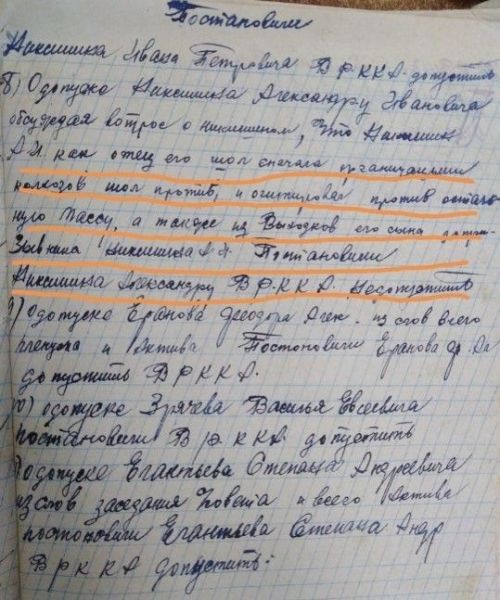 Постановили
Никишина Ивана Петровича В РККА допустить
8) О допуске Никишина Александру Ивановича
обсуждая вопрос о никишином, что Никишин
А.И. как отец его шол сначала организациии
колхозов шол против, и огитировал против
ную массу, а также из его сына
Никишина А.И. Постановили
Никишина Александру В Р.К.К.А. недопустить
9) О допуске Еранова Феодора Алек. из слов всего
пленума и Актива Постоновили Еранова Фр. Ал
допустить В Р К К А.
10) о допуске Зрячева Василья Евсеевича
постановили В Р К К А допустить
о допуске Елантьева Степана Андреевича
из слов заседания Совета и всего Актива
постоновили Елантьева Степана Андр
В Р К К А допустить.